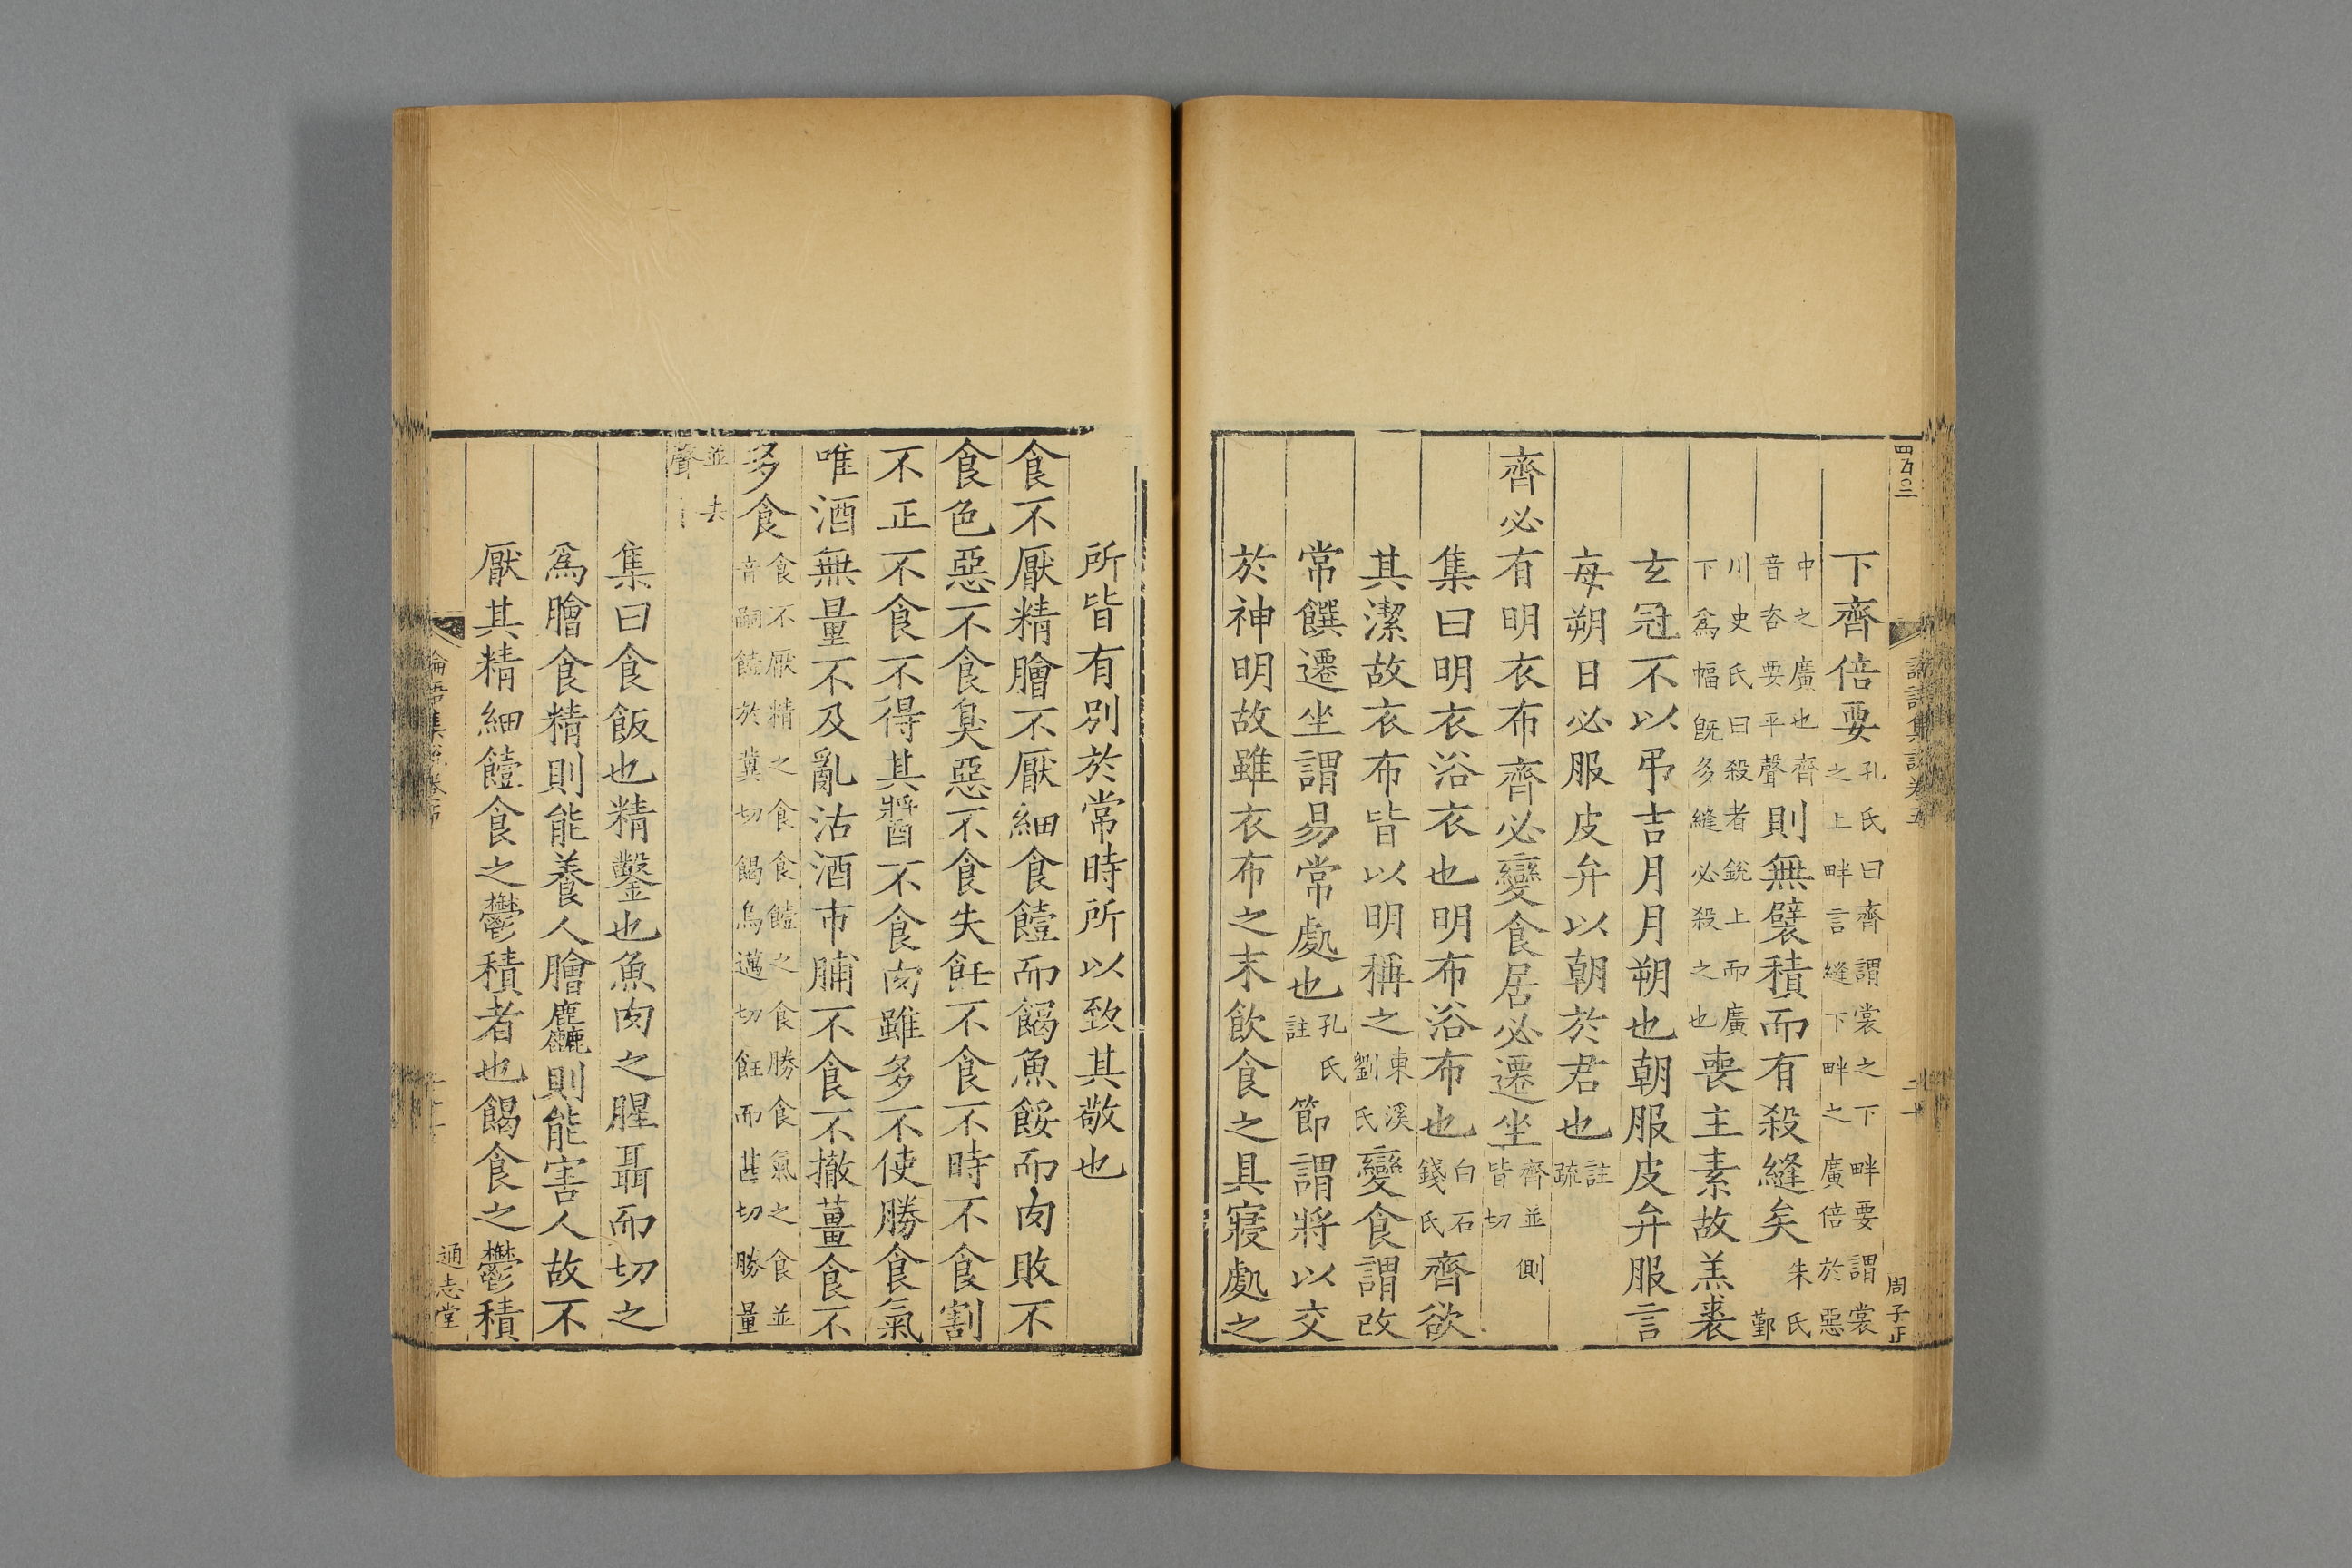 四百〇二
下齊倍要孔氏曰齊謂裳之下畔要謂裳之上畔言縫下畔之廣倍於惡
中之廣也齊音咨要平聲則無襞積而有殺縫矣朱氏鄞
川史氏曰殺者銳上而廣下爲幅旣多縫必殺之也喪主素故羔裘
玄冠不以弔吉月月朔也朝服皮弁服言
每朔日必服皮弁以朝於君也註疏
齊必有明衣布齊必變食居必遷坐齊並側皆切
集曰明衣浴衣也明布浴布也白石錢氏齊欲
其潔故衣布皆以明稱之東溪劉氏變食謂改
常饌遷坐謂易常處也孔氏註節謂將以交
於神明故雖衣布之末飲食之具寢處之
周子正
所皆有別於常時所以致其敬也
食不厭精膾不厭細食饐而餲魚餒而肉敗不
食色惡不食臭惡不食失飪不食不時不食割
不正不食不得其醬不食肉雖多不使勝食氣
唯酒無量不及亂沽酒市脯不食不撤薑食不
多食食不厭精之食食饐之食勝食氣之食並音嗣饐於冀切餲烏邁切飪而甚切勝量
並去聲
集曰食飯也精鑿也魚肉之腥聶而切之
爲膾食精則能養人膾麤則能害人故不
厭其精細饐食之鬱積者也餲食之鬱積
通志堂